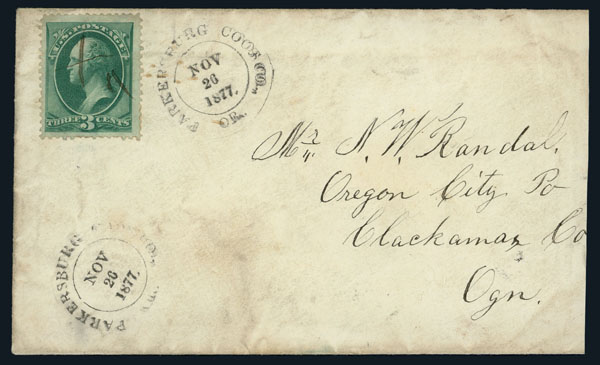 U.S. POSTAGE
THREE 3 CENTS
PARKERSBURG COOS CO., OR.
NOV
26
1877.
Mr. N. W. Randal,
Oregon City Po
Clackamas Co
Ogn.
PARKERSBURG
NOV
26
1877.